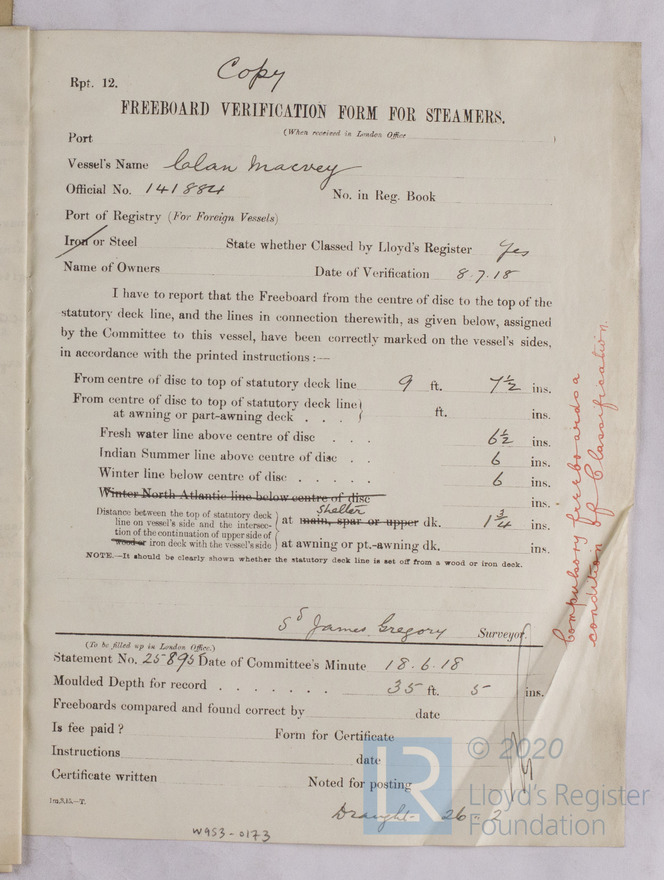 Copy
Rpt. 12.
FREEBOARD VERIFICATION FORM FOR STEAMERS.
(When received in London Office )
Port
Vessel's Name Clan Macvey
Official No. 141884 No. in Reg. Book
Port of Registry (For Foreign Vessels)
Iron or Steel State whether Classed by Lloyd's Register Yes
Name of Owners Date of Verification 8.7.18
I have to report that the Freeboard from the centre of disc to the top of the
statutory deck line, and the lines in connection therewith, as given below, assigned
by the Committee to this vessel, have been correctly marked on the vessel's sides,
in accordance with the printed instructions:—
From centre of disc to top of statutory deck line 9 ft. 7½ ins.
From centre of disc to top of statutory deck line
at awning or part-awning deck . . . ft. ins.
Fresh water line above centre of disc . . . 6½ ins.
Indian Summer line above centre of disc . . 6 ins.
Winter line below centre of disc . . . . . 6 ins.
Winter North Atlantic line below centre of disc ins.
Shelter
Distance between the top of statutory deck
line on vessel's side and the intersec- at main, spar or upper dk. 1¾ ins.
tion of the continuation of upper side of
wood or iron deck with the vessel's side at awning or pt.-awning dk. ins.
NOTE.—It should be clearly shown whether the statutory deck line is set off from a wood or iron deck.
Compulsory freeboards a
condition of Classification.
Sd James Gregory Surveyor.
(To be filled up in London Office.)
Statement No. 25895 Date of Committee's Minute 18.6.18
Moulded Depth for record . . . . . . . 35 ft. 5 ins.
Freeboards compared and found correct by date
Is fee paid? Form for Certificate
Instructions date
Certificate written Noted for posting
Draught 26 - 2
W953-0173
© 2020
Lloyd's Register
Foundation
LR